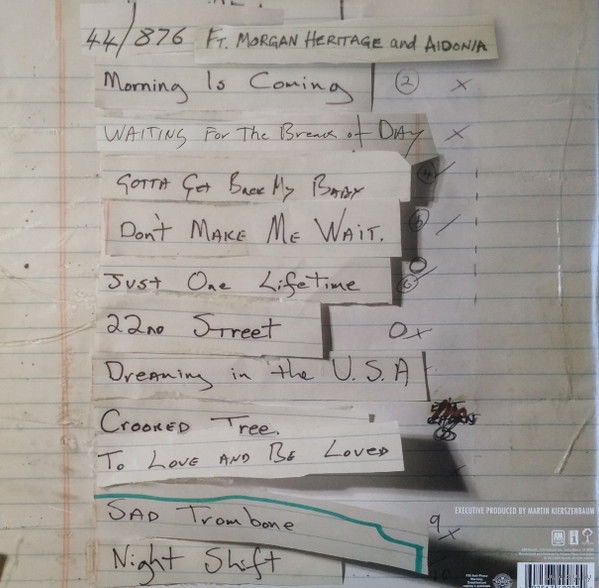 44/876 FT. MORGAN HERITAGE and AIDONIA
Morning Is Coming 2 x
WAITING FOR THE Break of DAY x
GOTTA GET BACK MY BABY
DON'T MAKE ME WAIT.
JUST ONE Lifetime
22ND STREET O x
Dreaming in the U.S.A
CROOKED TREE.
TO LOVE AND BE LOVED
SAD Trombone 9 x
Night Shift
EXECUTIVE PRODUCED BY MARTIN KIERSZENBAUM